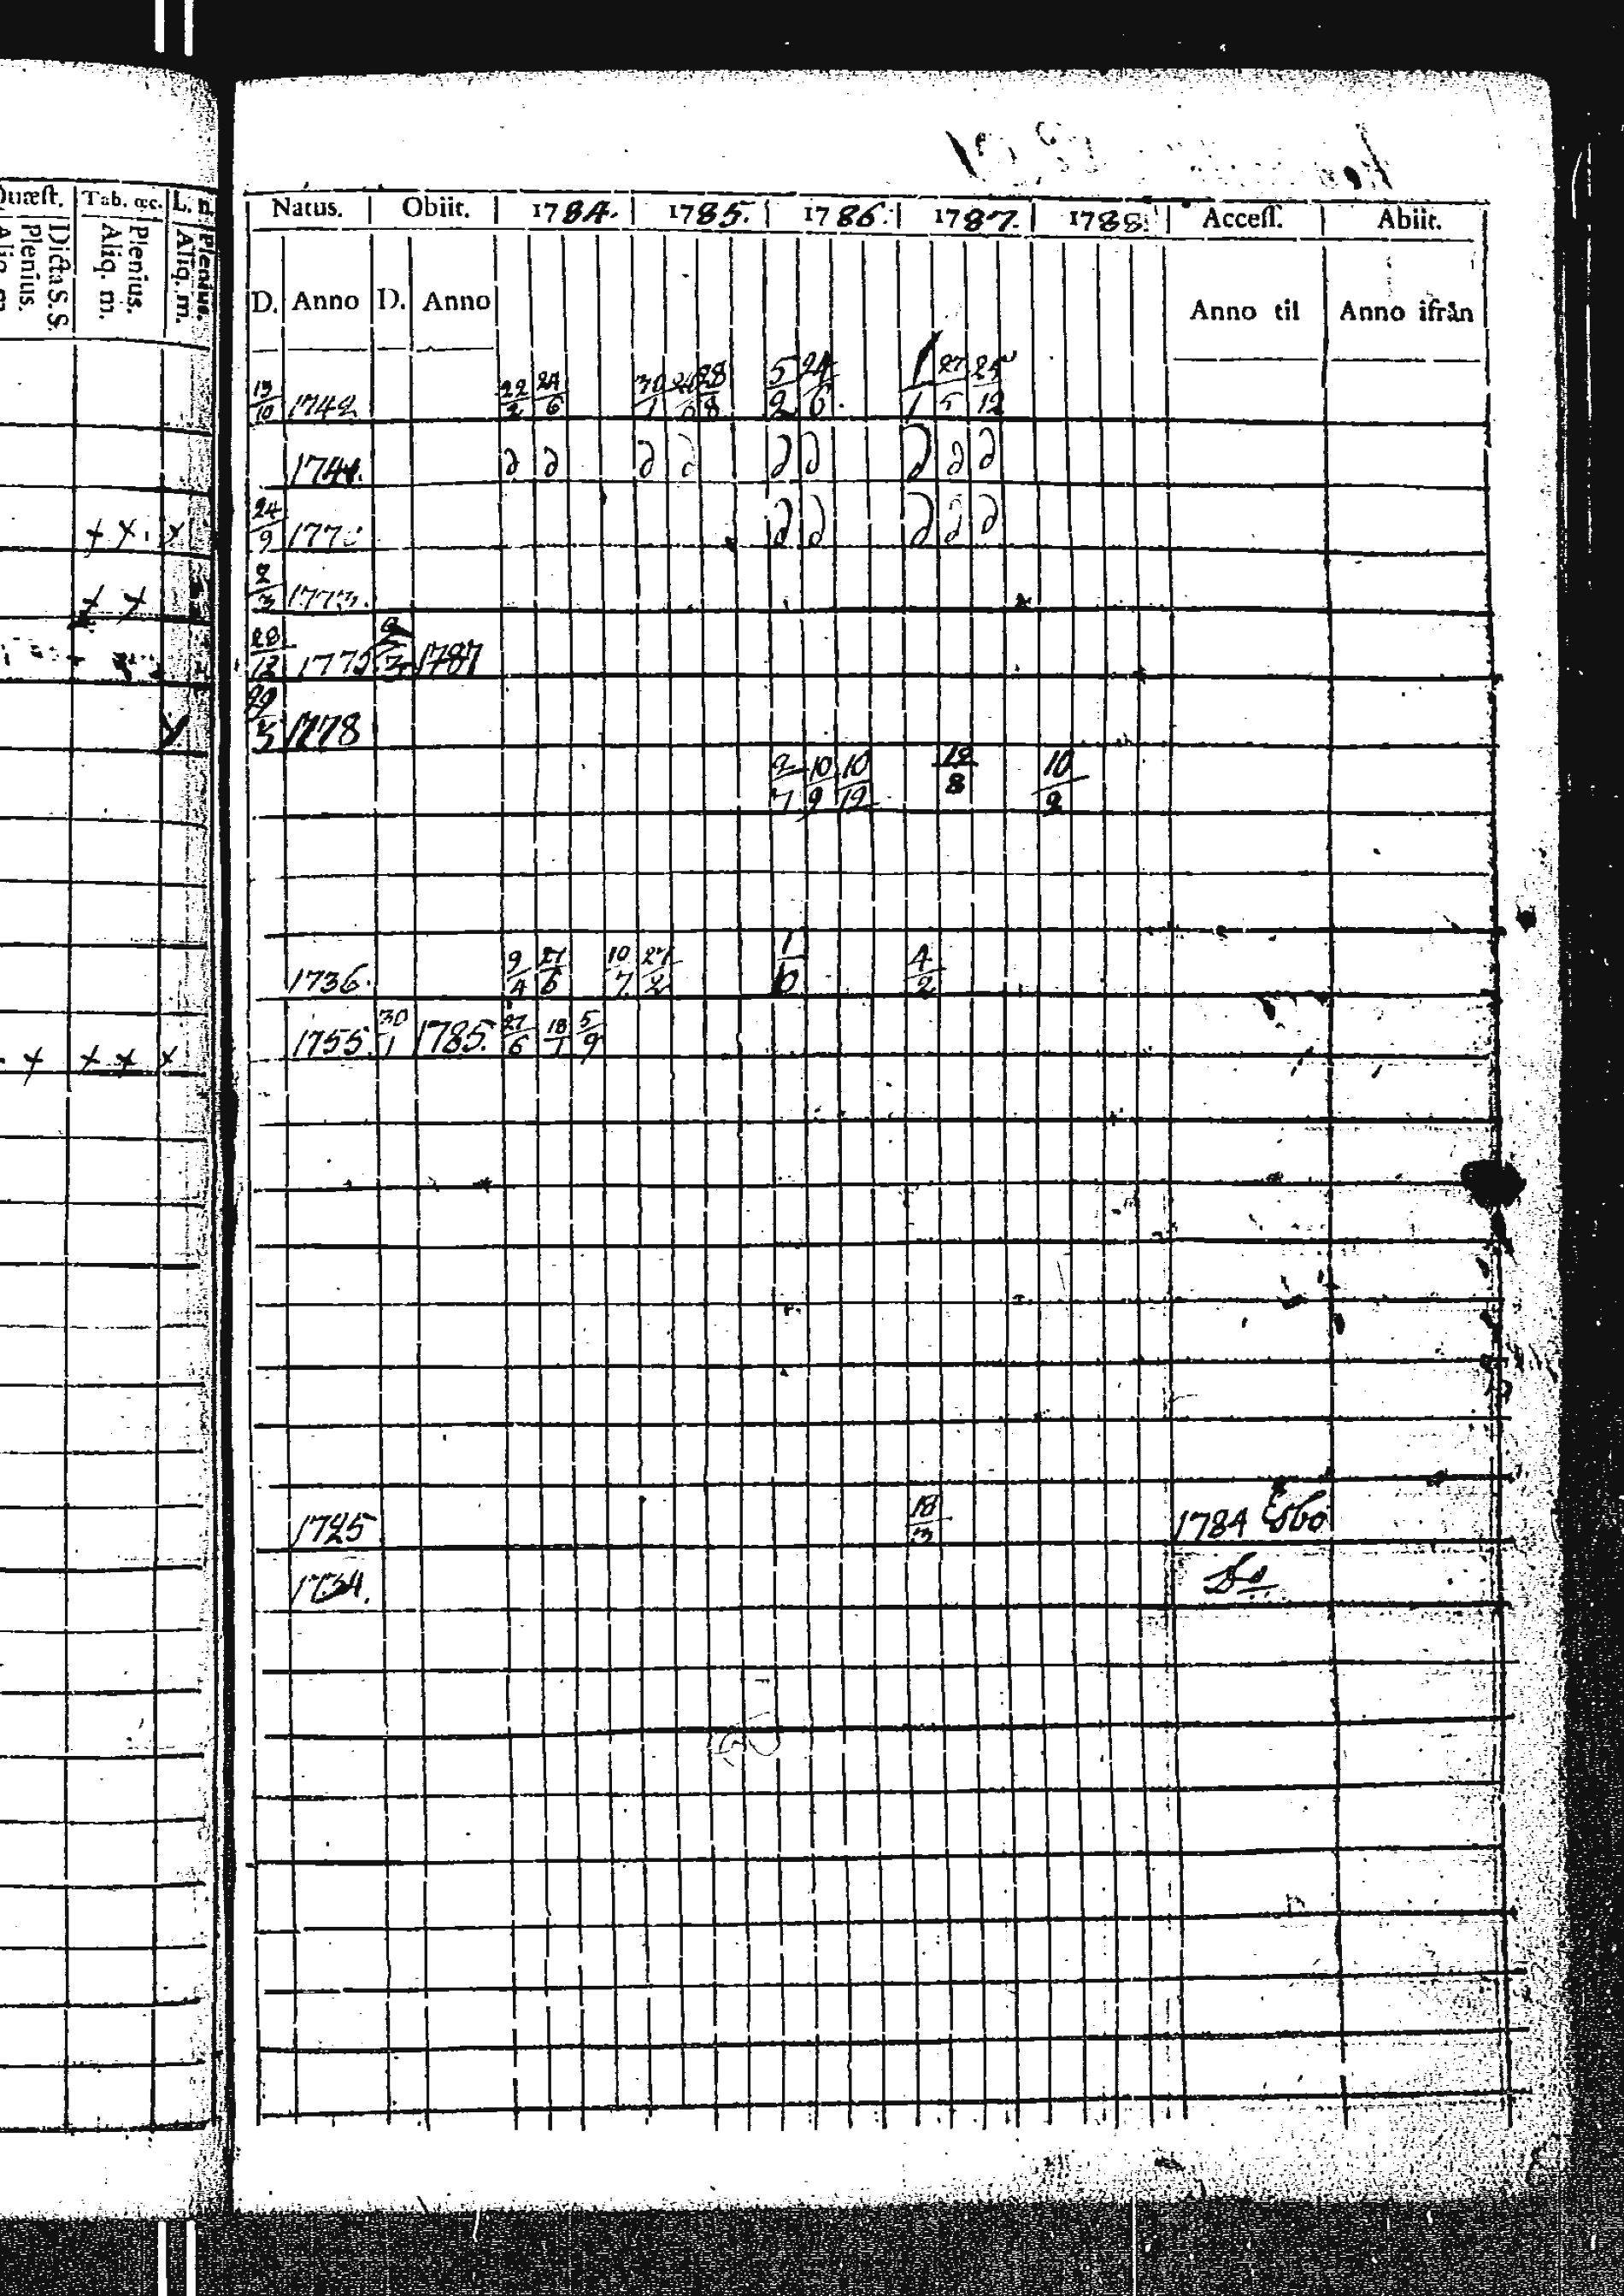 Quæst. Tab. œc. L. n.
Dicta S.S. Plenius. Aliq. m. Plenius. Aliq. m. Plenius. Aliq. m.
Natus. Obiit. 1784. 1785. 1786. 1787. 1788. Access. Abiit.
D. Anno D. Anno Anno til Anno ifrån
13/10 1742 22/2 24/6 30/1 28/8 5/2 24/6 1/1 27/5 25/12
1744. d d d d d d d d d
x x x 24/9 177 d d d d d
x x 2/3 1773.
28/12 1775 2/3 1787
x 29/3 1778
2/7 10/9 10/12 12/8 10/2
1736. 9/4 27/6 10/7 27/2 1/10 4/2
x x x x 1755. 30/1 1785. 27/6 18/7 5/9
1725 18/3 1784 Esbo
1734. Do